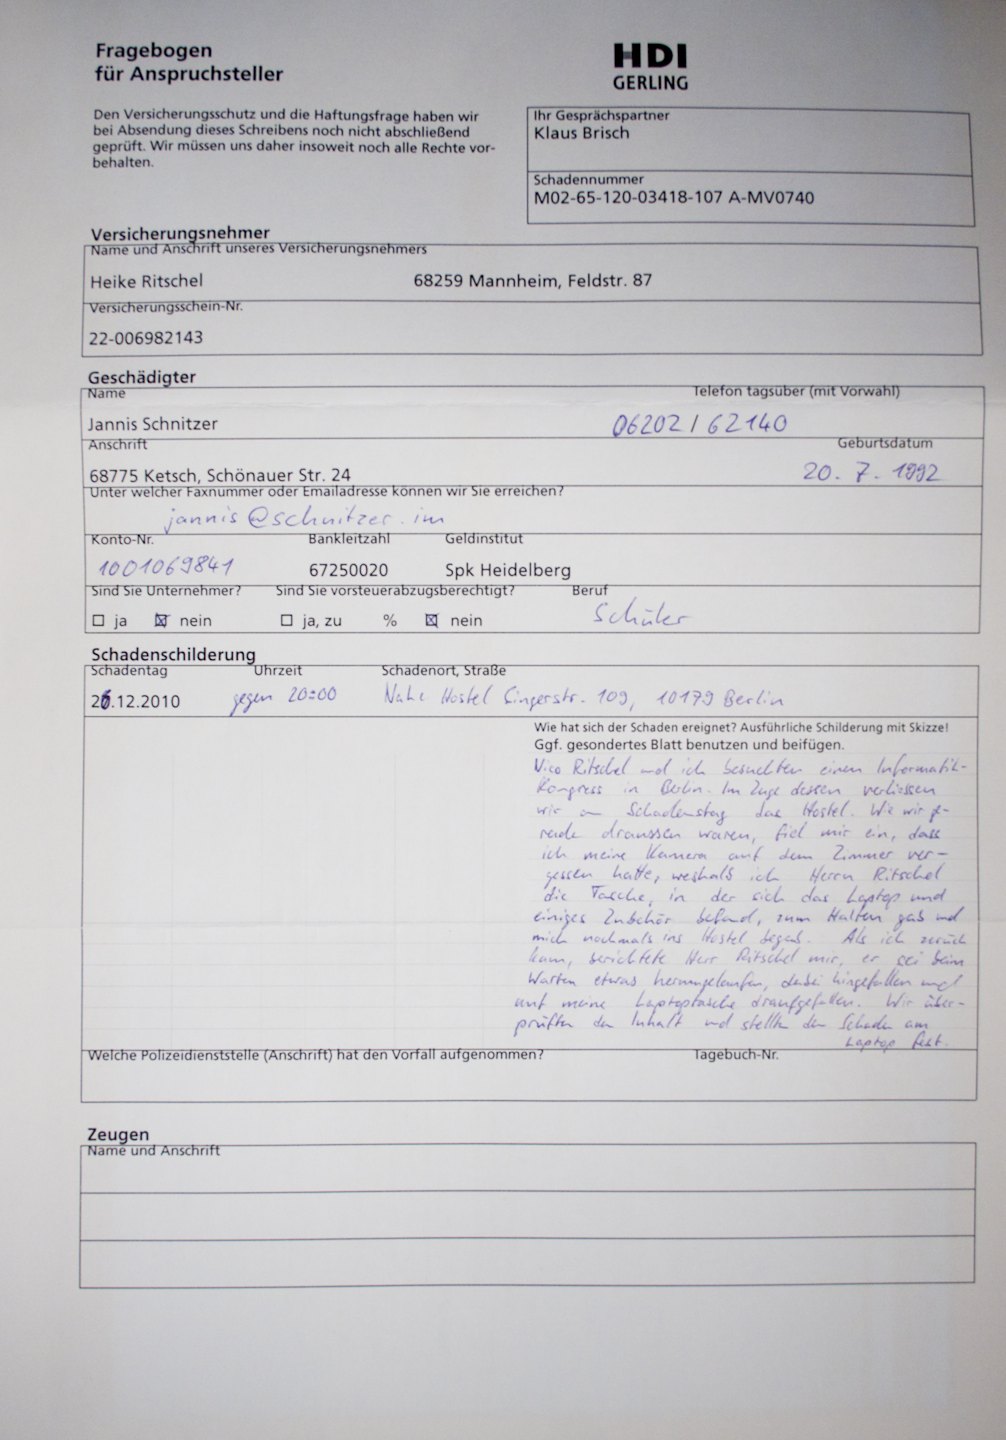 Fragebogen
für Anspruchsteller
HDI
GERLING
Den Versicherungsschutz und die Haftungsfrage haben wir
bei Absendung dieses Schreibens noch nicht abschließend
geprüft. Wir müssen uns daher insoweit noch alle Rechte vor-
behalten.
Ihr Gesprächspartner
Klaus Brisch
Schadennummer
M02-65-120-03418-107 A-MV0740
Versicherungsnehmer
Name und Anschrift unseres Versicherungsnehmers
Heike Ritschel 68259 Mannheim, Feldstr. 87
Versicherungsschein-Nr.
22-006982143
Geschädigter
Name Telefon tagsüber (mit Vorwahl)
Jannis Schnitzer 06202 / 62140
Anschrift Geburtsdatum
68775 Ketsch, Schönauer Str. 24 20. 7. 1992
Unter welcher Faxnummer oder Emailadresse können wir Sie erreichen?
jannis@schnitzer.im
Konto-Nr. Bankleitzahl Geldinstitut
1001069841 67250020 Spk Heidelberg
Sind Sie Unternehmer? Sind Sie vorsteuerabzugsberechtigt? Beruf
ja nein ja, zu % nein Schüler
Schadenschilderung
Schadentag Uhrzeit Schadenort, Straße
26.12.2010 gegen 20:00 Nahe Hostel Singerstr. 109, 10179 Berlin
Wie hat sich der Schaden ereignet? Ausführliche Schilderung mit Skizze!
Ggf. gesondertes Blatt benutzen und beifügen.
Nico Ritschel und ich besuchten einen Informatik-
kongress in Berlin. Im Zuge dessen verliessen
wir am Schadenstag das Hostel. Wie wir ge-
rade draussen waren, fiel mir ein, dass
ich meine Kamera auf dem Zimmer ver-
gessen hatte, weshalb ich Herrn Ritschel
die Tasche, in der sich das Laptop und
einiges Zubehör befand, zum Halten gab und
mich nochmals ins Hostel begab. Als ich zurück
kam, berichtete Herr Ritschel mir, er sei beim
Warten etwas herumgelaufen, dabei hingefallen und
auf meine Laptoptasche draufgefallen. Wir über-
prüften den Inhalt und stellten den Schaden am
Laptop fest.
Welche Polizeidienststelle (Anschrift) hat den Vorfall aufgenommen? Tagebuch-Nr.
Zeugen
Name und Anschrift